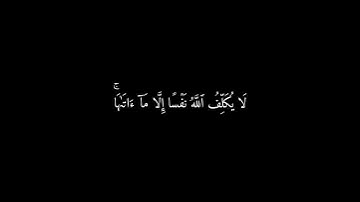 لَا يُكَلِّفُ ٱللَّهُ نَفْسًا إِلَّا مَآ ءَاتَىٰهَاۚ